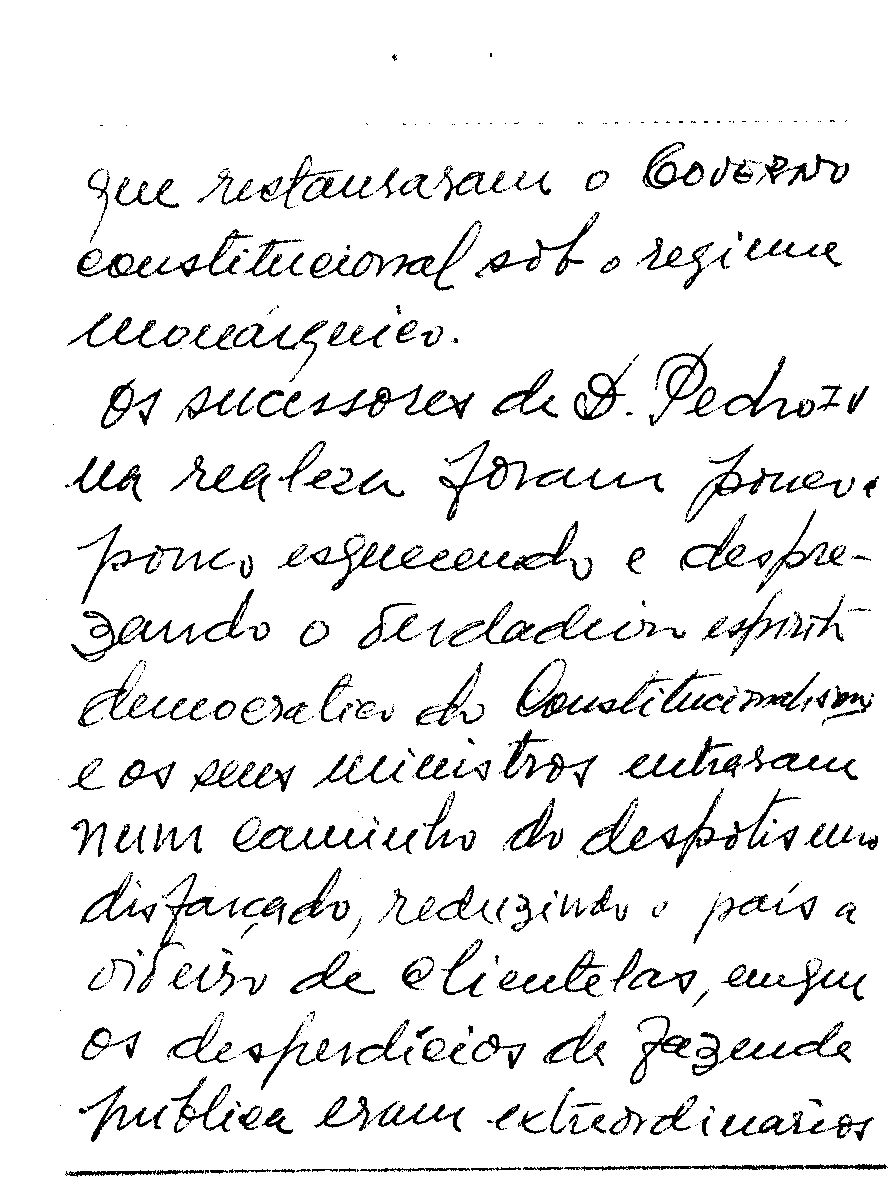 que restauraram o GOVERNO
constitucional sób o regime
monárquico.
Os sucessores de D. Pedro IV
na realeza foram pouco a
pouco esquecendo e despre-
zando o verdadeiro espírito
democratico do Constitucionalismo
e os seus ministros entraram
num caminho do despotismo
disfarçado, reduzindo o país a
viveiro de clientelas, em que
os desperdícios da fazenda
publica eram extraordinários